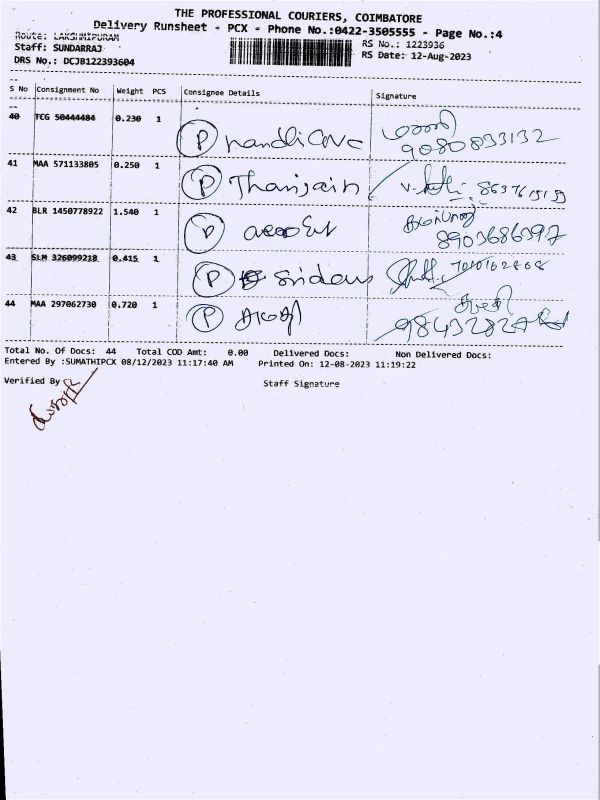 THE PROFESSIONAL COURIERS, COIMBATORE
Delivery Runsheet - PCX - Phone No.:0422-3505555 - Page No.:4
Route: LAKSHMIPURAM
RS No.: 1223936
Staff: SUNDARRAJ
RS Date: 12-Aug-2023
DRS No,: DCJB122393604
S No Consignment No Weight PCS Consignee Details Signature
40 TCG 50444484 0.230 1 P
9080833132
41 MAA 571133805 0.250 1 P Thanjain
42 BLR 1450778922 1.540 1 P
8903686397
43 SLM 326099218 0.415 1 P
44 MAA 297062730 0.720 1 P
Total No. Of Docs: 44 Total COD Amt: 0.00 Delivered Docs: Non Delivered Docs:
Entered By :SUMATHIPCX 08/12/2023 11:17:40 AM Printed On: 12-08-2023 11:19:22
Verified By
Staff Signature